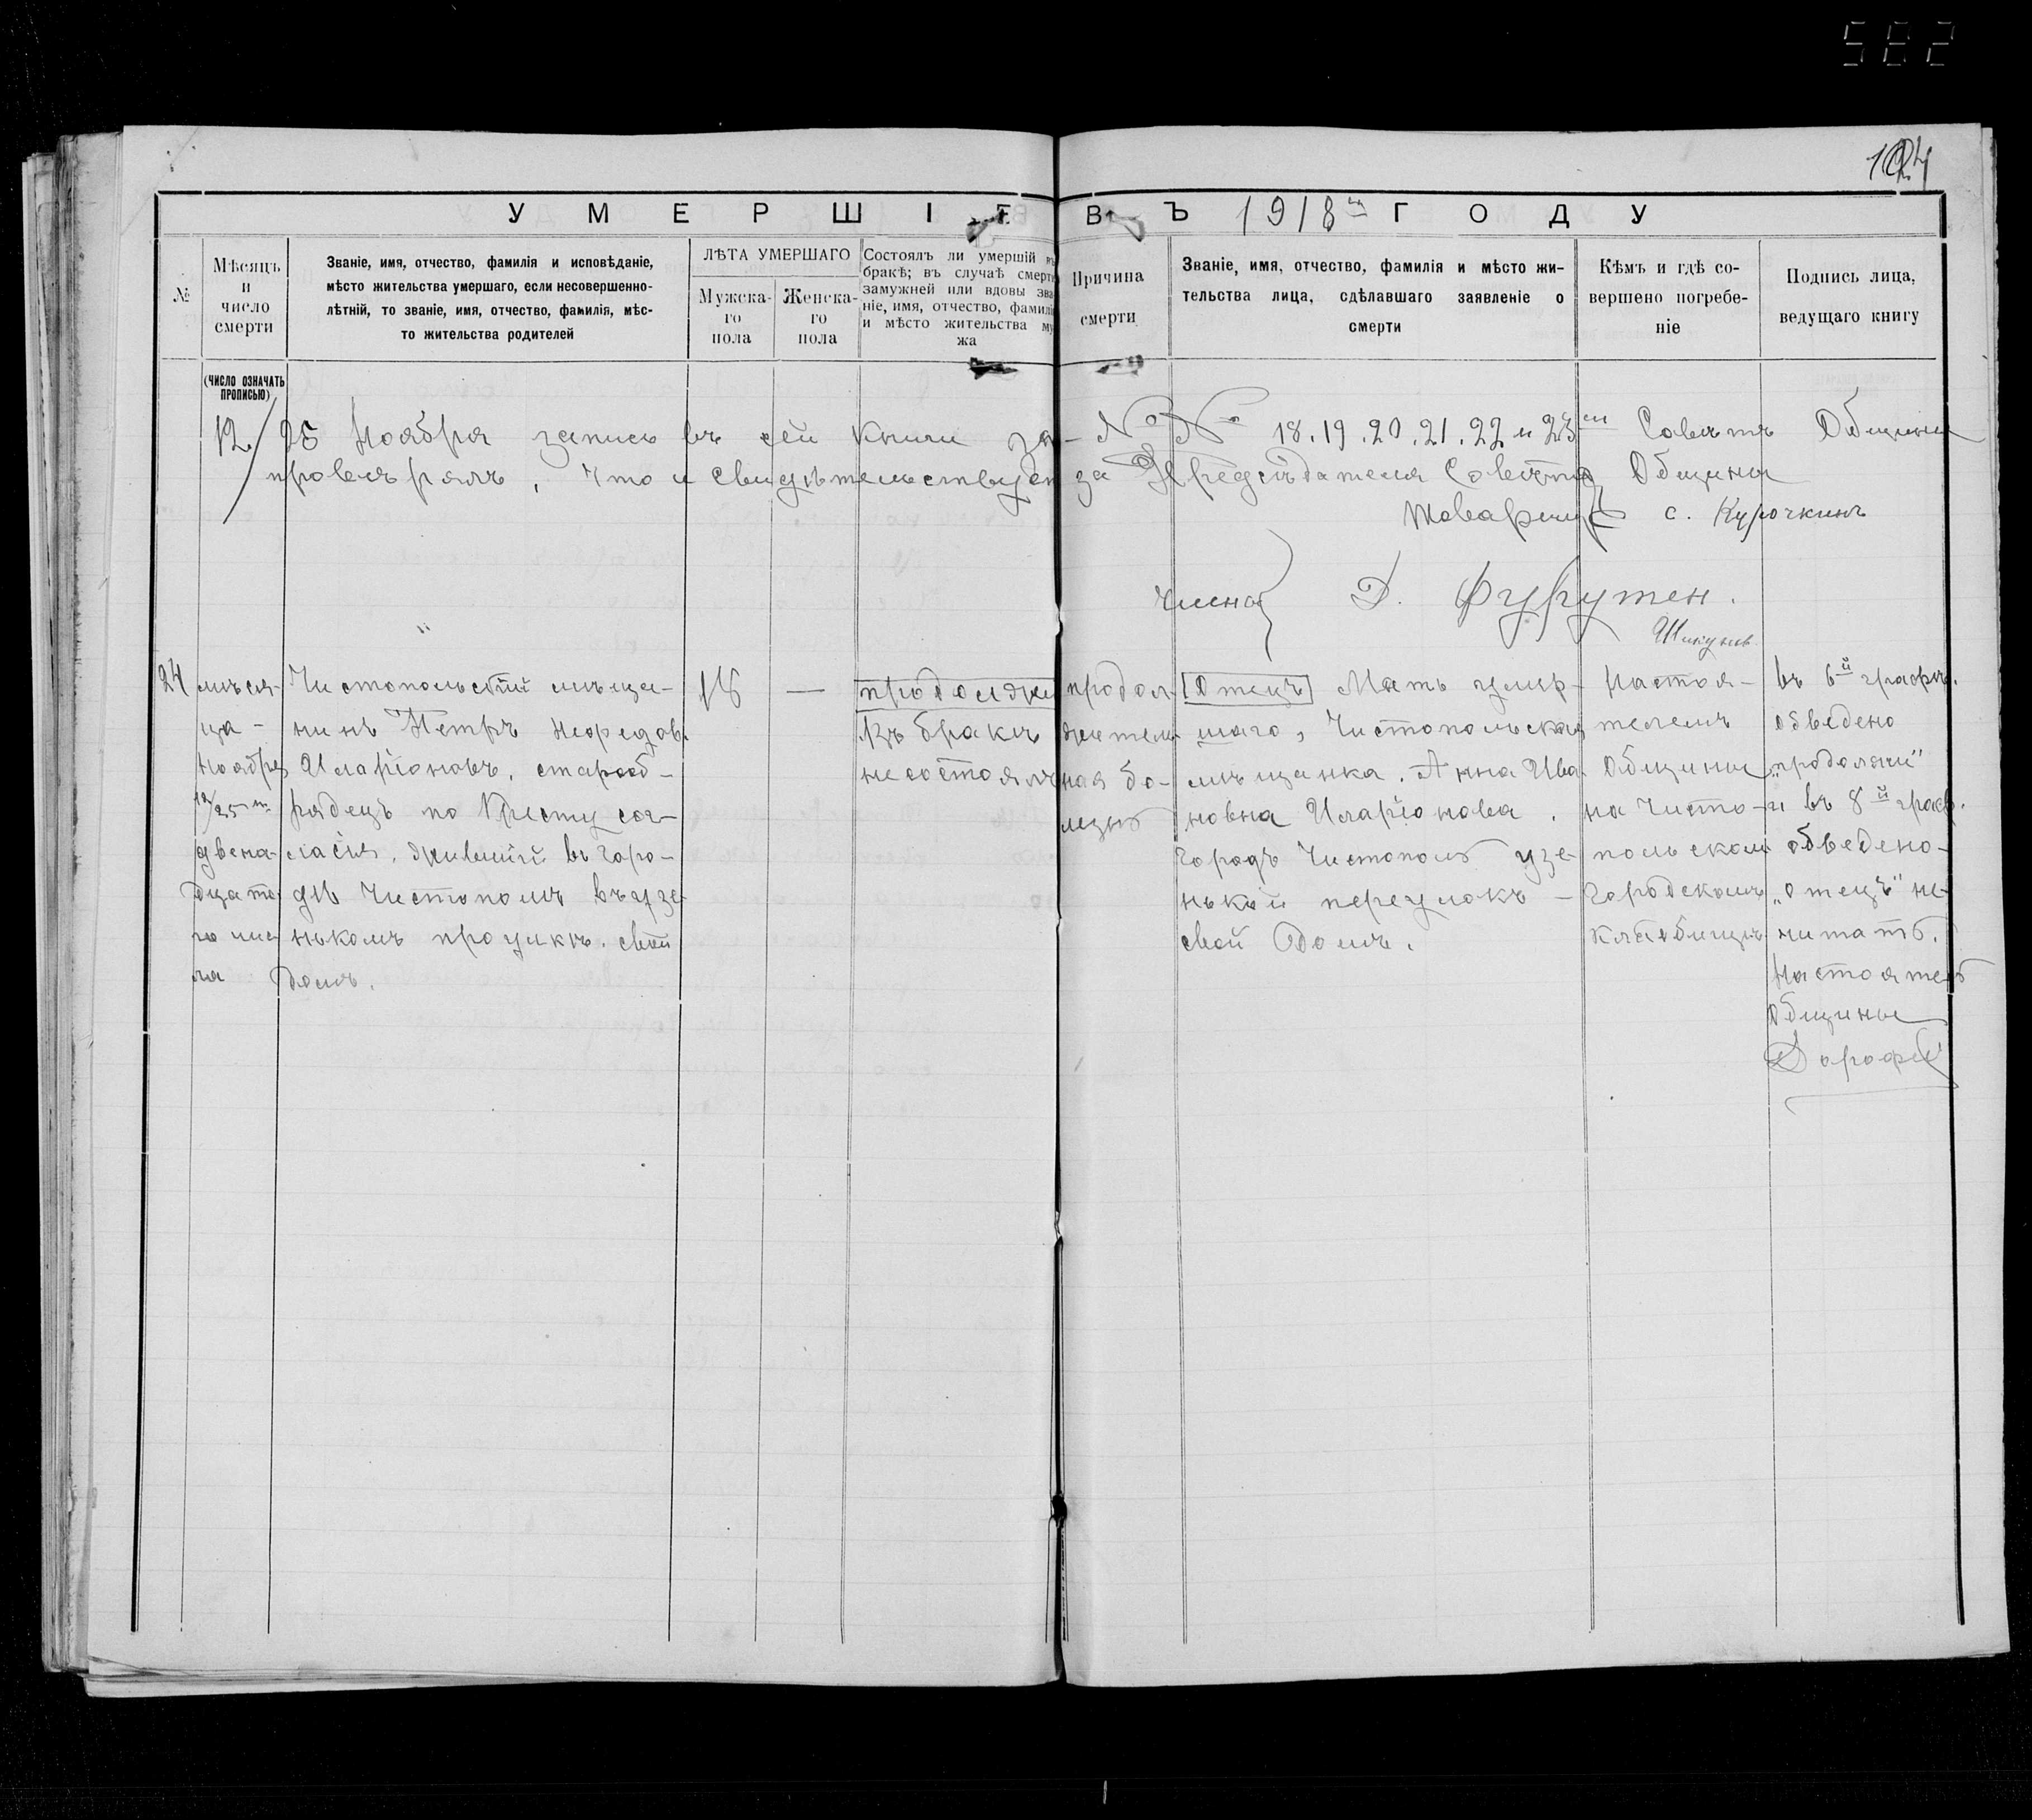 582
104
УМЕРШІЕ ВЪ 1918м ГОДУ
№
Мѣсяцъ
и
число
смерти
Званіе, имя, отчество, фамилія и исповѣданіе,
мѣсто жительства умершаго, если несовершенно-
лѣтній, то званіе, имя, отчество, фамилія, мѣс-
то жительства родителей
ЛѢТА УМЕРШАГО
Мужска-
го
пола
Женска-
го
пола
Состоялъ ли умершій въ
бракѣ; въ случаѣ смерти
замужней или вдовы зва-
ніе, имя, отчество, фамилія
и мѣсто жительства му-
жа
Причина
смерти
Званіе, имя, отчество, фамилія и мѣсто жи-
тельства лица, сдѣлавшаго заявленіе о
смерти
Кѣмъ и гдѣ со-
вершено погребе-
ніе
Подпись лица,
ведущаго книгу
(ЧИСЛО ОЗНАЧАТЬ
ПРОПИСЬЮ)
12/25 Ноября запись въ сей книги за- №№ 18.19.20.21.22 и 23м Совѣтъ Общины
провѣрялъ, что и свидѣтельствуетъ за Предсѣдателя Совѣта Общины
Товарищъ с. Курочкинъ
Члена Д. Фурутен.
24
мѣся-
ца
Ноября
12/25го
двена-
дцата
го чис
ла
Чистопольскій мѣща-
нинъ Петръ Нефедов.
Иларіоновъ, старооб-
рядецъ по Христу сог-
ласія, жившій въ горо-
дѣ Чистополѣ въ узе-
нькомъ проулкѣ. свой
домъ.
16
—
продолжи
Въ бракѣ
несостоялъ
продол-
житель
ная бо-
лезнь
[Отецъ] Мать умер-
шаго, Чистопольская
мѣщанка. Анна Ива
новна Иларіонова.
городъ Чистополь узе-
нькой переулокъ —
свой домъ.
Настоя-
телемъ
Общины
на Чисто-
польском
городскомъ
кладбищѣ
въ 6й графѣ.
обведено
„продолжи"
и въ 8й граф.
обведено-
„отецъ" не-
читать.
Настоятель
Общины
Дорофей